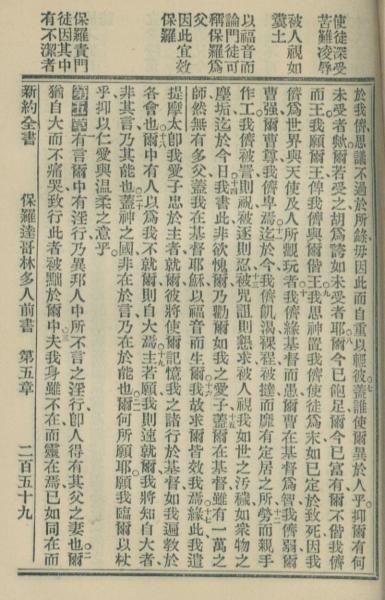 使徒深受
苦難凌辱
被人視如
糞土
以福音而
論門徒可
稱保羅爲
父
因此宜效
保羅
保羅責門
徒因其中
有不潔者
於我儕思議不過於所錄毋因此而自重以輕彼七蓋誰使爾異於人乎抑爾有何
未受者歟爾若受之胡爲誇如未受者耶八爾今已飽足爾今已富有爾不偕我儕
而王我願爾王俾我儕與爾偕王九我思神置我儕使徒爲末如已定於致死因我
儕爲世界與天使及人所觀玩者十我儕緣基督而愚爾曹在基督爲智我儕弱爾
曹强爾曹尊我儕卑焉十一迄於今我儕飢渴裸裎被撻而靡有定居之所十二勞而親手
作工我儕被詈則祝被逐則忍十三被咒詛則懇求被人視我如世之汚穢如衆物之
塵垢迄於今日十四我書此非欲愧爾乃勸爾如我之愛子十五蓋爾在基督雖有一萬之
師然無有多父蓋我在基督耶穌以福音而生爾十六我故求爾皆效我焉十七緣此我遣
提摩太即我愛子忠於主者就爾彼將使爾記憶我之諸行於基督如我遍敎於
各會也十八爾中有人以爲我不就爾則自大焉十九主若願我則速就爾我將知自大者
非其言乃其能也二十蓋神之國非在於言乃在於能也二一爾何所願耶願我臨爾以杖
乎抑以仁愛與溫柔之意乎
第五章有言爾中有淫行乃異邦人中所不言之淫行即人得有其父之妻也二爾
猶自大而不痛哭致行此者被黜於爾中三夫我身雖不在而靈在焉已如同在而
新約全書 保羅達哥林多人前書 第五章 二百五十九